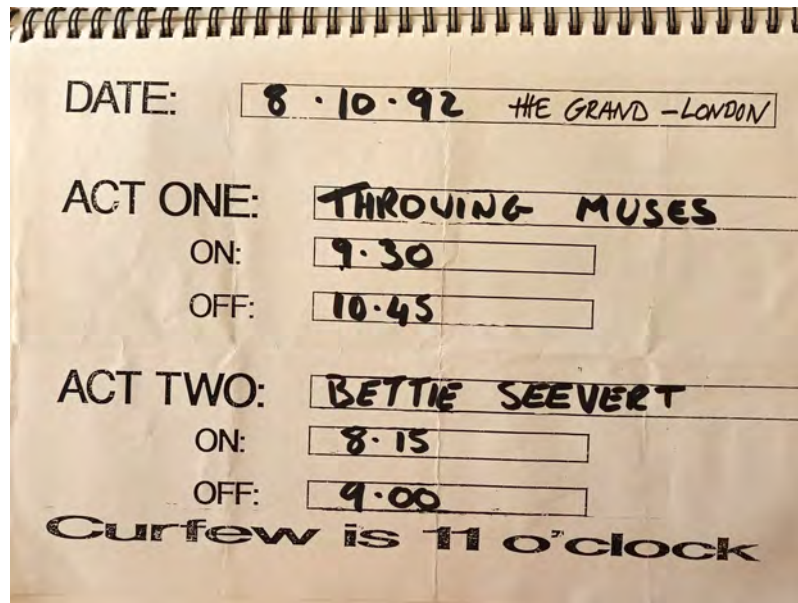 DATE: 8.10.92 THE GRAND - LONDON
ACT ONE: THROVING MUSES
ON: 9.30
OFF: 10.45
ACT TWO: BETTIE SEEVERT
ON: 8.15
OFF: 9.00
Curfew is 11 o'clock